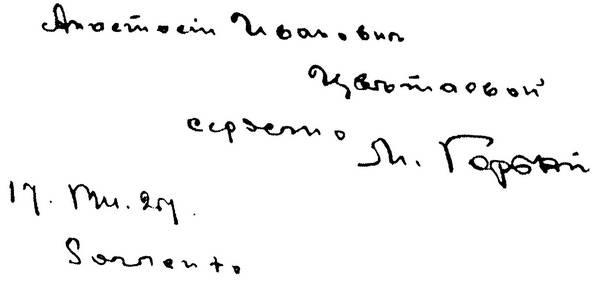 Анастасіи Ивановне
Цветаевой
сердечно
М. Горький
17. VIII. 27.
Sorrento.